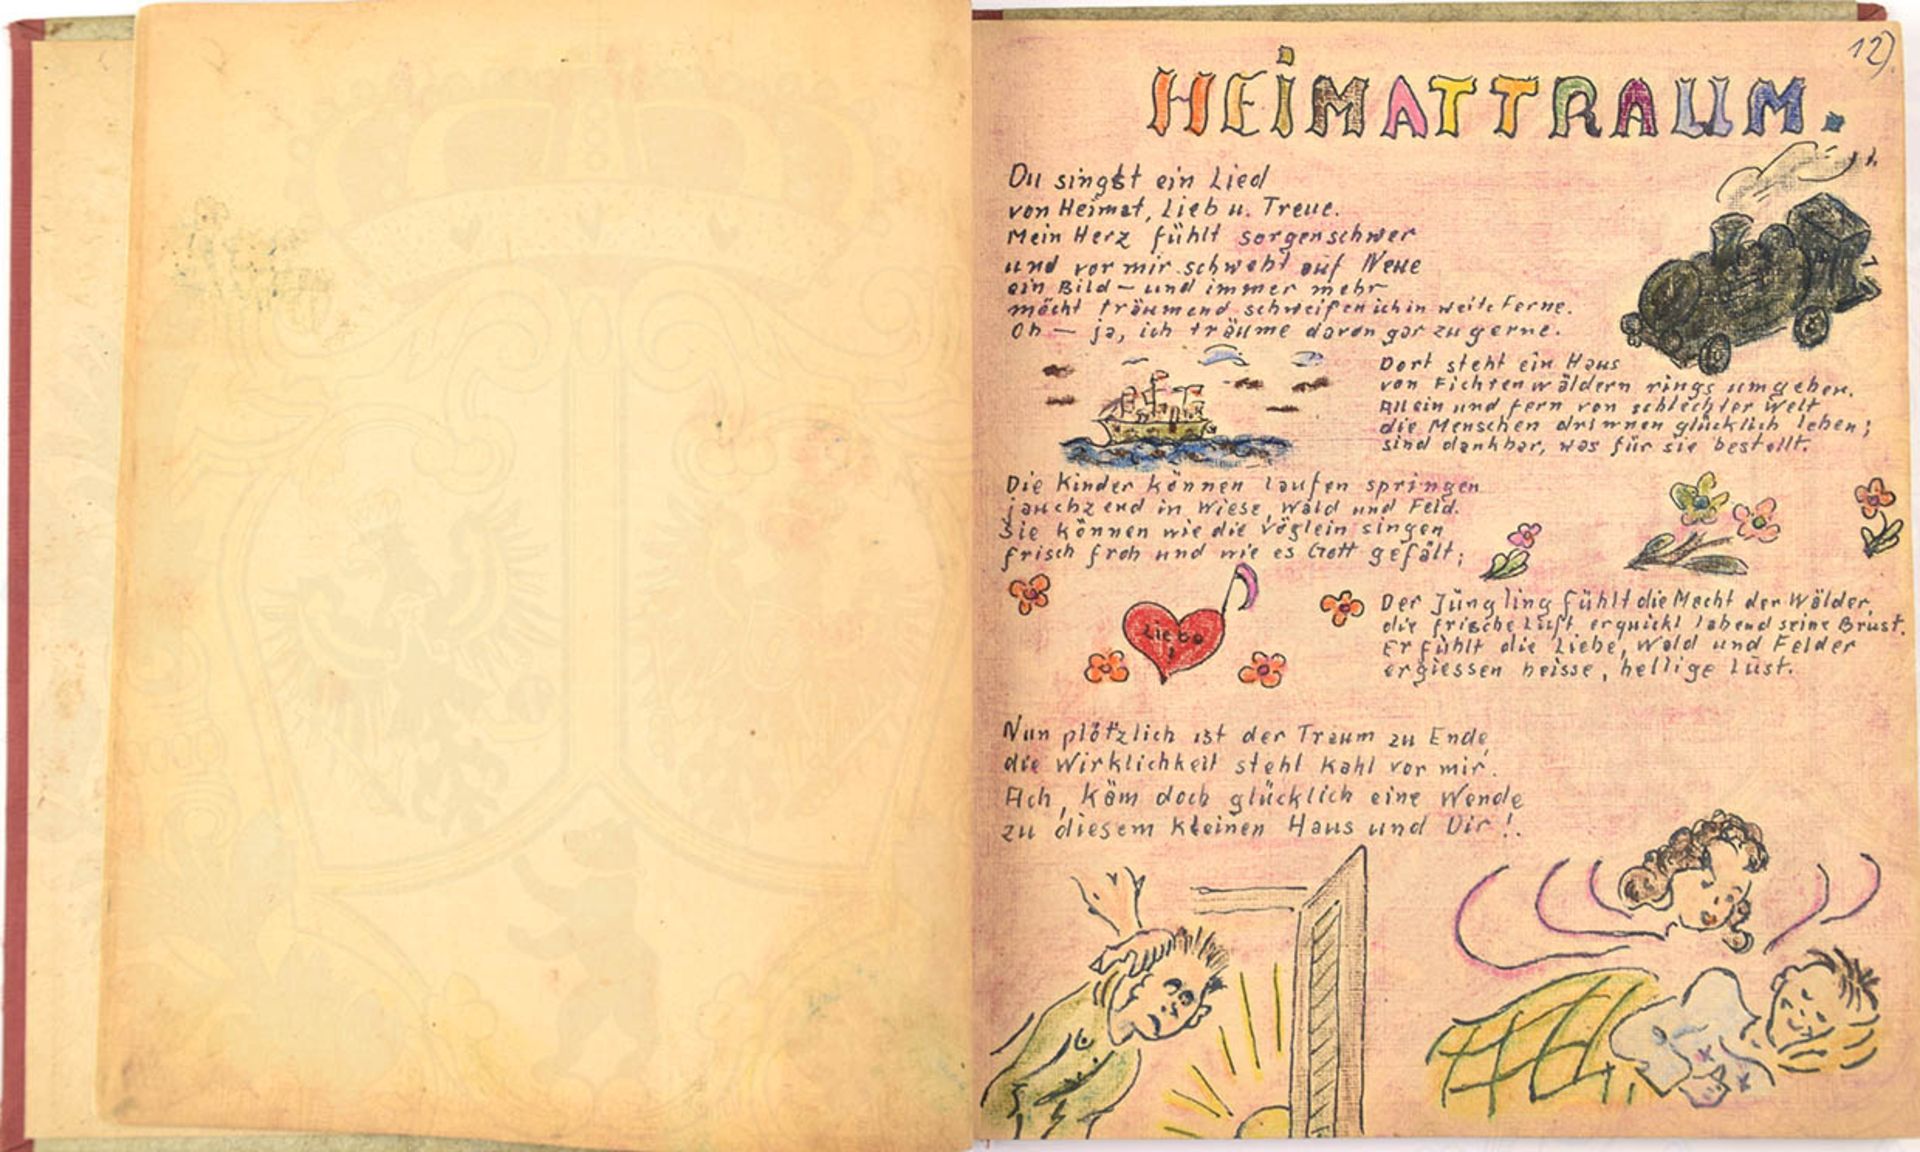 12).
HEIMATTRAUM.
Du singst ein Lied
von Heimat, Lieb u. Treue.
Mein Herz fühlt sorgenschwer
und vor mir schwebt auf Neue
ein Bild – und immer mehr
möcht träumend schweifen ich in weite Ferne.
Oh – ja, ich träume davon gar zu gerne.
Dort steht ein Haus
von Fichtenwäldern rings umgeben.
Allein und fern von schlechter Welt
die Menschen drinnen glücklich leben;
sind dankbar, was für sie bestellt.
Die Kinder können laufen springen
jauchzend in Wiese, Wald und Feld.
Sie können wie die Vöglein singen
frisch froh und wie es Gott gefält;
Liebe
Der Jüngling fühlt die Macht der Wälder,
die frische Luft erquickt labend seine Brust.
Er fühlt die Liebe, Wald und Felder
ergiessen heisse, heilige Lust.
Nun plötzlich ist der Traum zu Ende,
die Wirklichkeit steht kahl vor mir.
Ach, käm doch glücklich eine Wende
zu diesem kleinen Haus und Dir!.